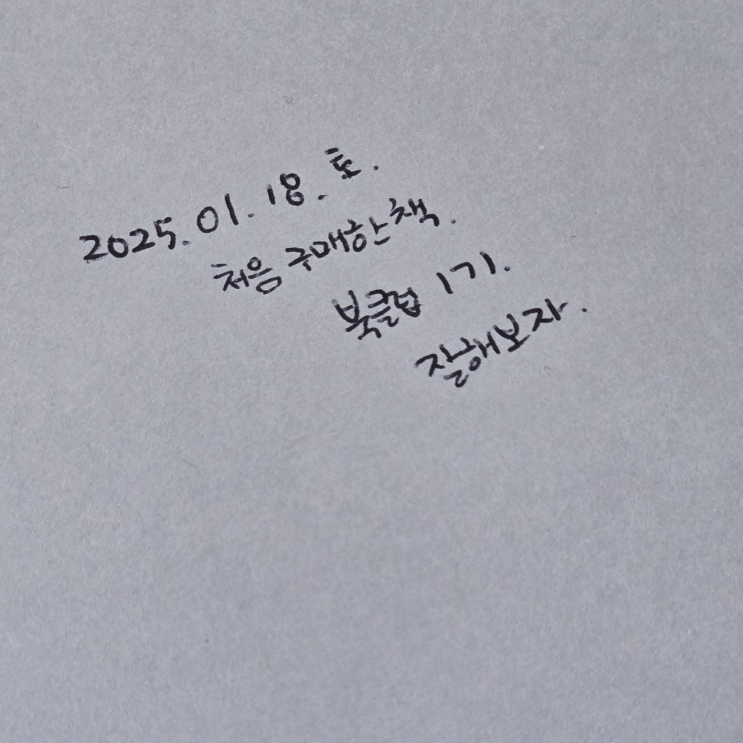 2025.01.18.토.
처음 구매한 책.
북클럽 1기.
잘해보자.